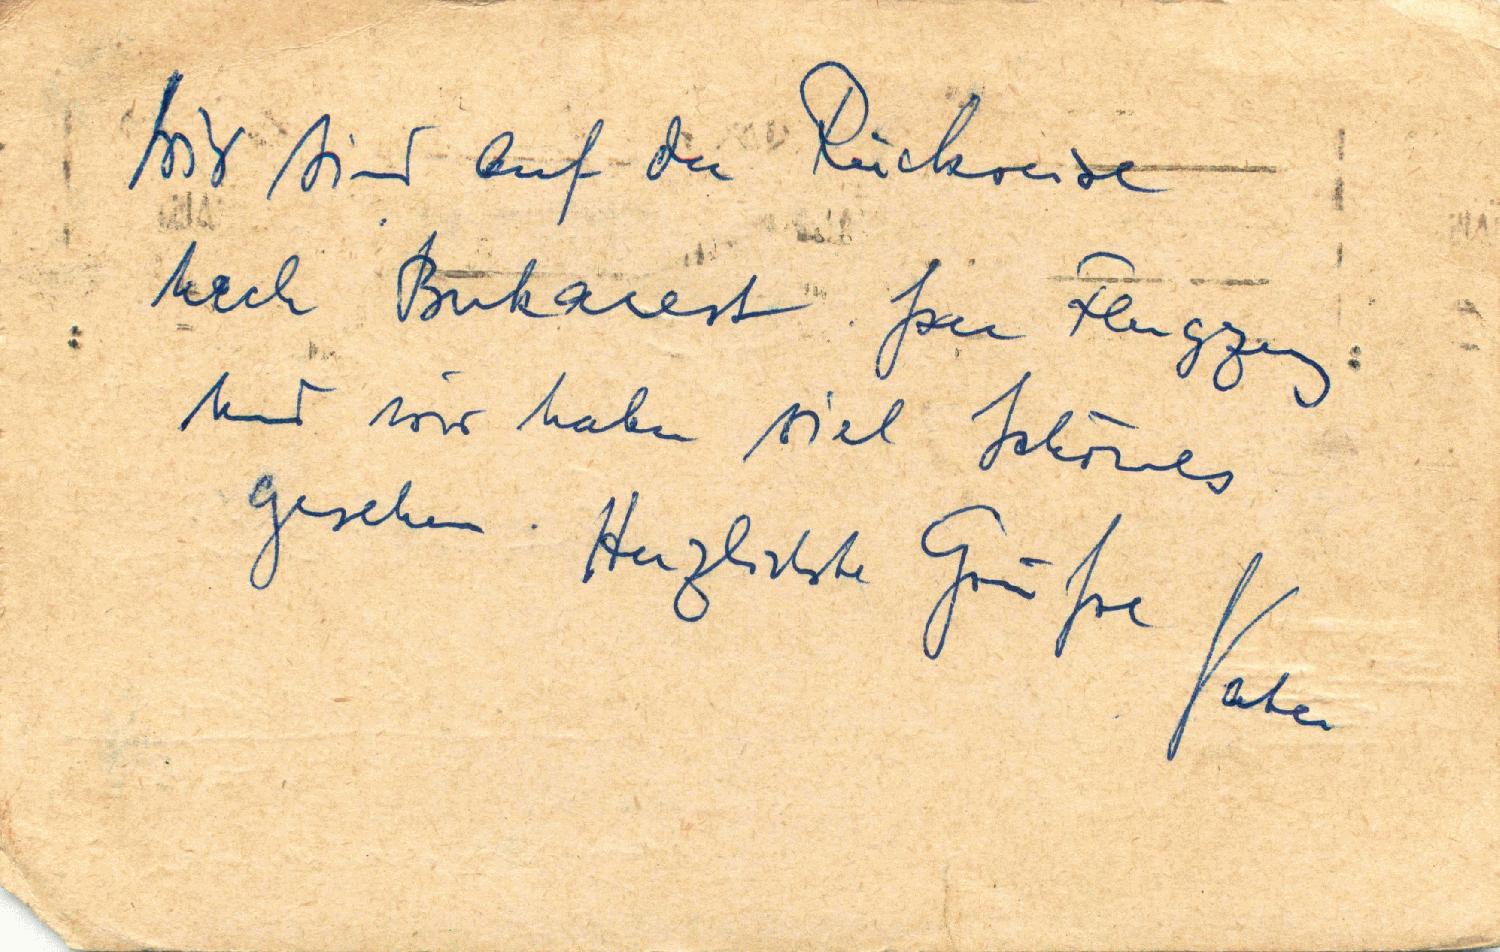 Wir sind auf der Rückreise
nach Bukarest per Flugzeug
und wir haben viel Schönes
gesehen. Herzlichste Grüße
Vater